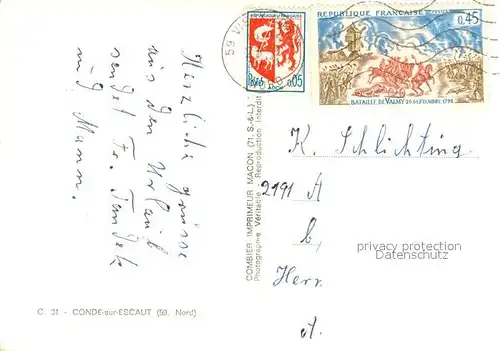 Herzliche Grüsse
aus dem Urlaub
sendet Fr. Tandek
mit Mann.
C. 31 - CONDE-sur-ESCAUT (59. Nord)
COMBIER IMPRIMEUR MACON (71. S.-&-L.)
Photographie Véritable - Reproduction Interdite
59
RÉPUBLIQUE FRANÇAISE
0,05
AUCH
RÉPUBLIQUE FRANÇAISE POSTES
0,45
BATAILLE DE VALMY 20 SEPTEMBRE 1792
K. Schlichting
2191 A
b,
Herr
A.
privacy protection
Datenschutz